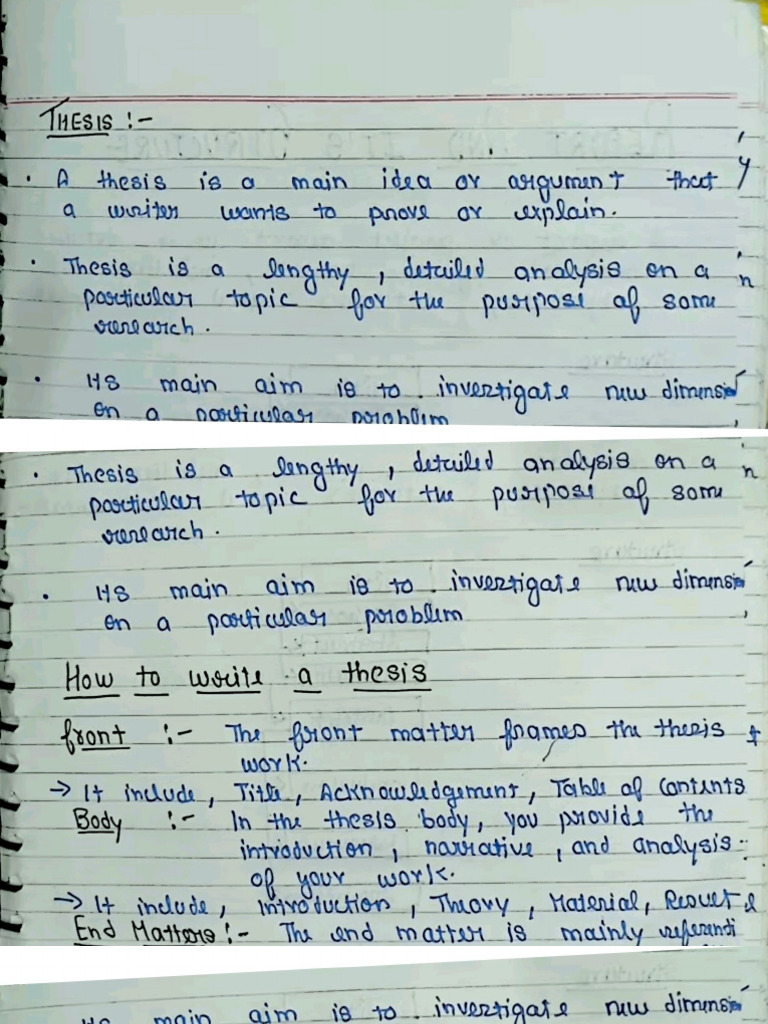 THESIS :-
• A thesis is a main idea or argument that
a writer wants to prove or explain.
• Thesis is a lengthy, detailed analysis on a
particular topic for the purpose of some
research.
• Its main aim is to investigate new dimensi
on a particular problem
• Thesis is a lengthy, detailed analysis on a
particular topic for the purpose of some
research.
• Its main aim is to investigate new dimensi
on a particular problem
How to write a thesis
front :- The front matter frames the thesis
work.
→ It include, Title, Acknowledgement, Table of Contents
Body :- In the thesis body, you provide the
introduction, narrative, and analysis
of your work.
→ It include, Introduction, Theory, Material, Result &
End Matters :- The end matter is mainly referenci
Its main aim is to investigate new dimensi